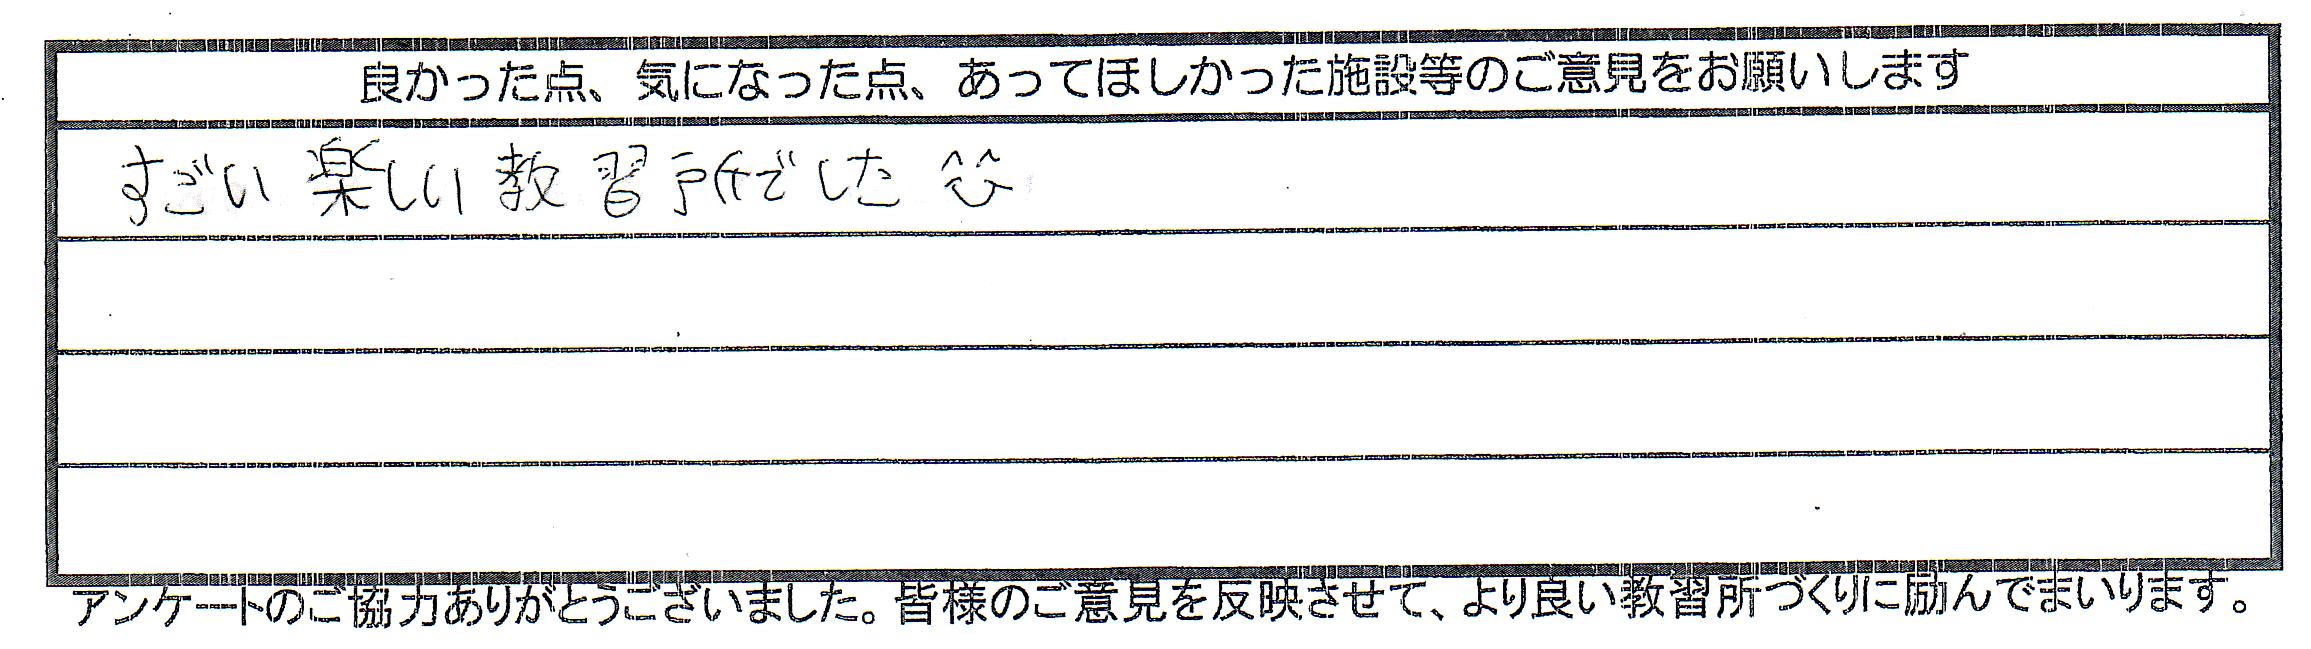 良かった点、気になった点、あってほしかった施設等のご意見をお願いします
すごい楽しい教習所でした
アンケートのご協力ありがとうございました。皆様のご意見を反映させて、より良い教習所づくりに励んでまいります。